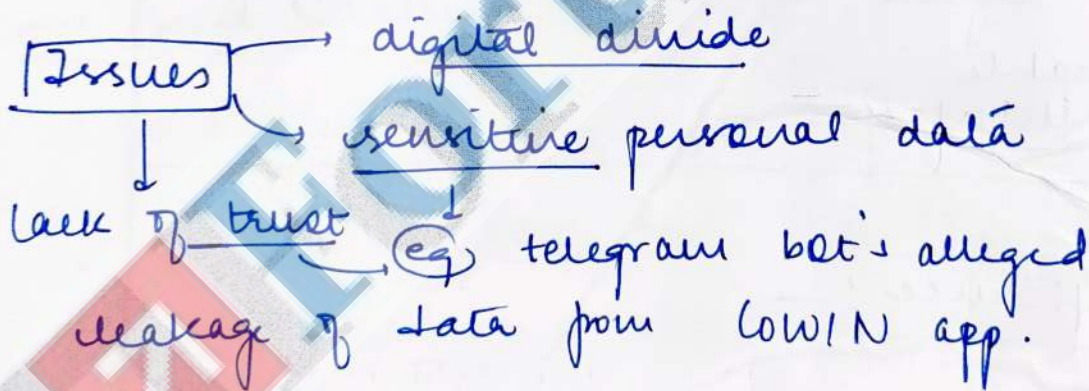 digital divide
Issues
sensitive personal data
lack of trust
eg telegram bot's alleged
leakage of data from COWIN app.